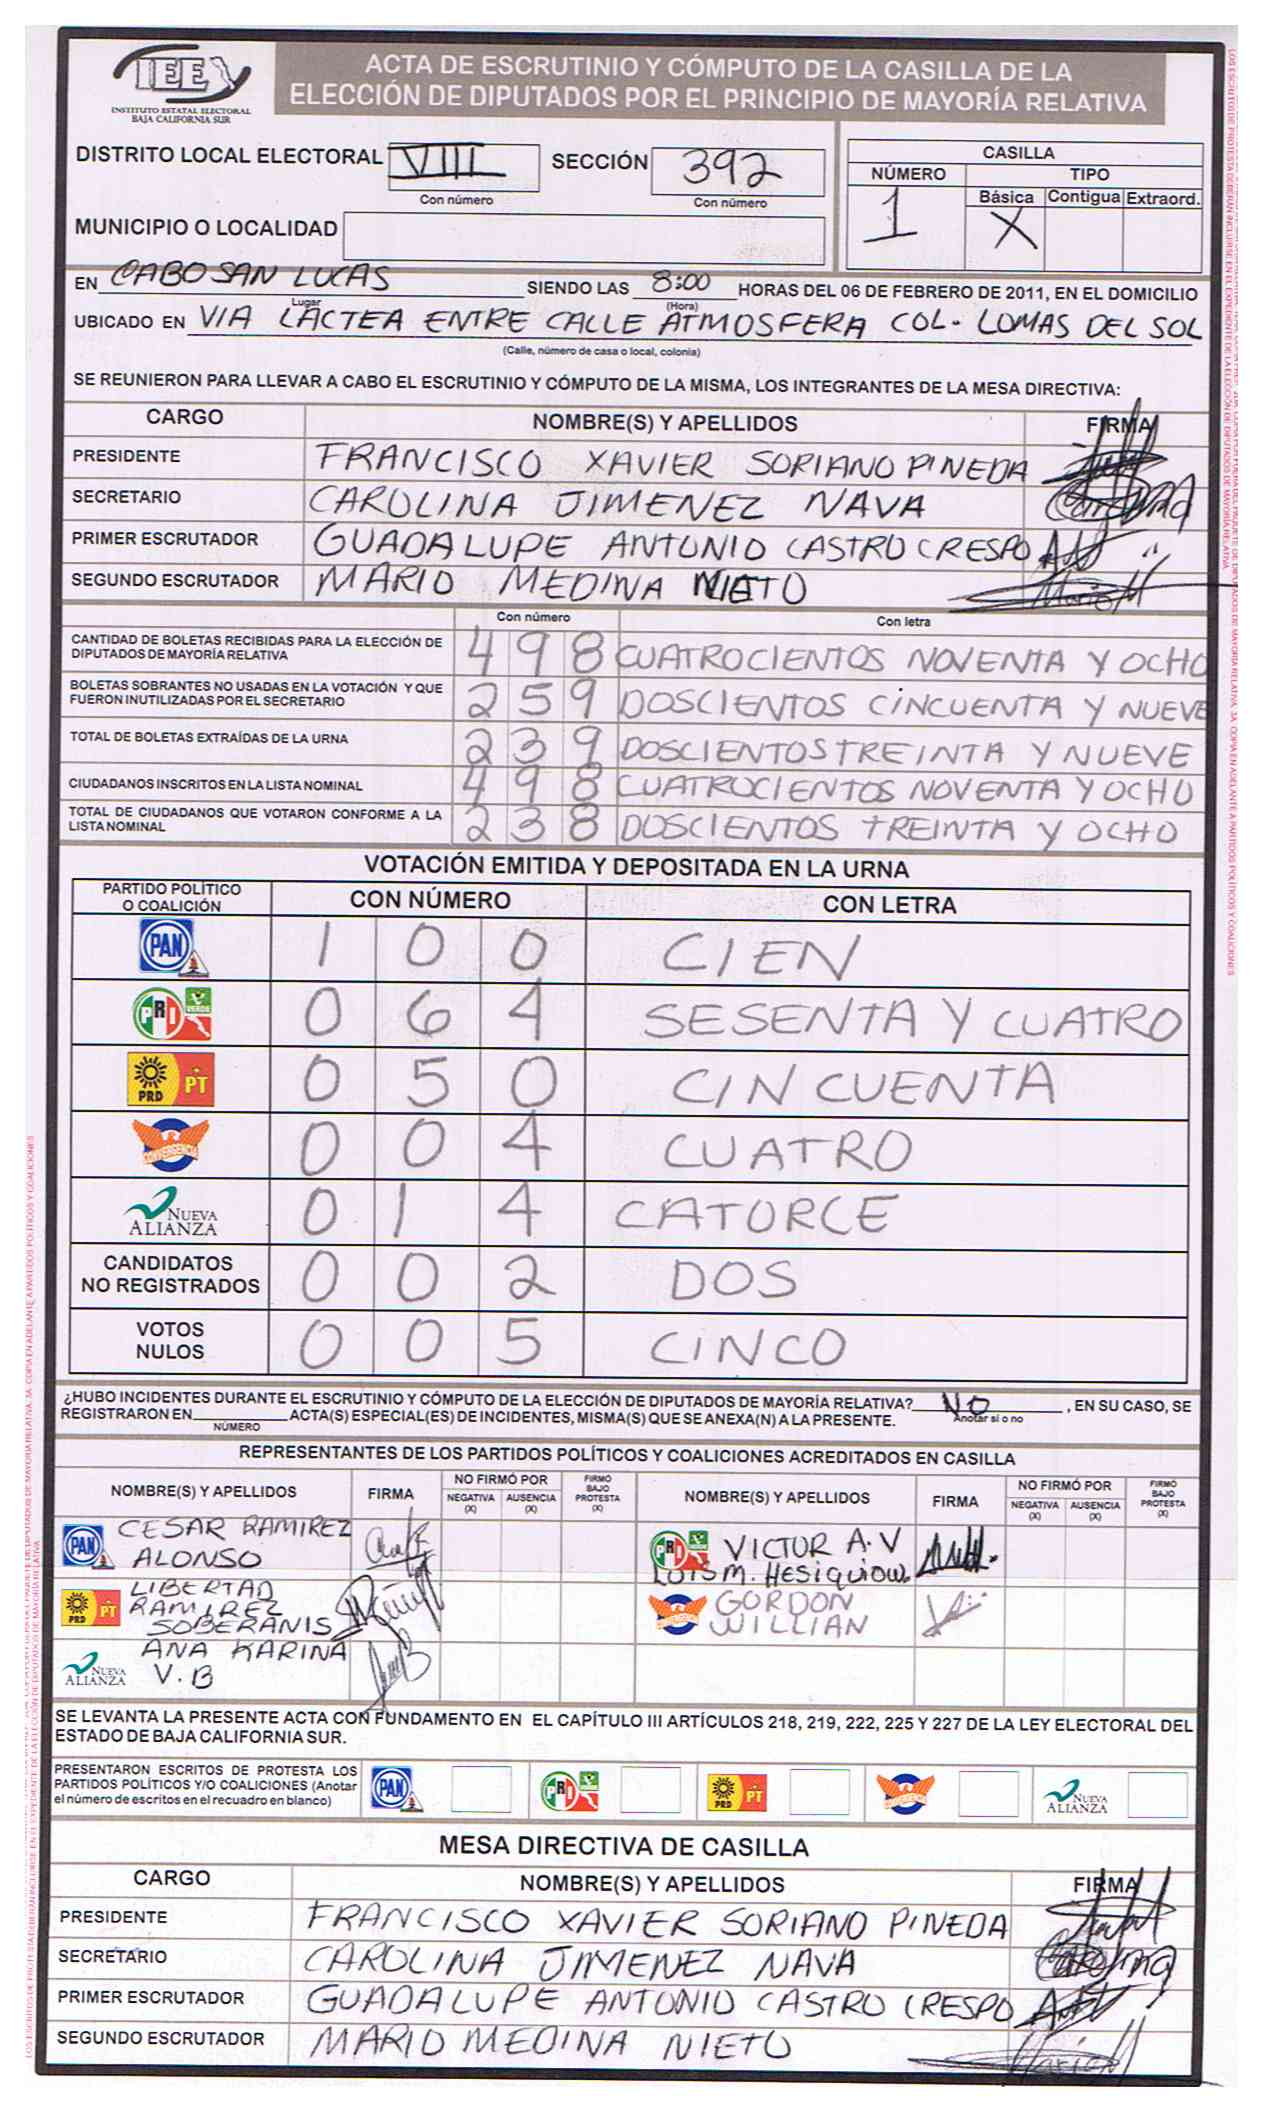 IEE
INSTITUTO ESTATAL ELECTORAL
BAJA CALIFORNIA SUR
ACTA DE ESCRUTINIO Y CÓMPUTO DE LA CASILLA DE LA
ELECCIÓN DE DIPUTADOS POR EL PRINCIPIO DE MAYORÍA RELATIVA
DISTRITO LOCAL ELECTORAL VIII SECCIÓN 392
Con número Con número
MUNICIPIO O LOCALIDAD
CASILLA
NÚMERO TIPO
Básica Contigua Extraord.
1 X
EN CABO SAN LUCAS SIENDO LAS 8:00 HORAS DEL 06 DE FEBRERO DE 2011, EN EL DOMICILIO
Lugar (Hora)
UBICADO EN VIA LACTEA ENTRE CALLE ATMOSFERA COL. LOMAS DEL SOL
(Calle, número de casa o local, colonia)
SE REUNIERON PARA LLEVAR A CABO EL ESCRUTINIO Y CÓMPUTO DE LA MISMA, LOS INTEGRANTES DE LA MESA DIRECTIVA:
CARGO NOMBRE(S) Y APELLIDOS FIRMA
PRESIDENTE FRANCISCO XAVIER SORIANO PINEDA
SECRETARIO CAROLINA JIMENEZ NAVA
PRIMER ESCRUTADOR GUADALUPE ANTONIO CASTRO CRESPO
SEGUNDO ESCRUTADOR MARIO MEDINA NIETO Mario M
Con número Con letra
CANTIDAD DE BOLETAS RECIBIDAS PARA LA ELECCIÓN DE
DIPUTADOS DE MAYORÍA RELATIVA 498 CUATROCIENTOS NOVENTA Y OCHO
BOLETAS SOBRANTES NO USADAS EN LA VOTACIÓN Y QUE
FUERON INUTILIZADAS POR EL SECRETARIO 259 DOSCIENTOS CINCUENTA Y NUEVE
TOTAL DE BOLETAS EXTRAÍDAS DE LA URNA 239 DOSCIENTOS TREINTA Y NUEVE
CIUDADANOS INSCRITOS EN LA LISTA NOMINAL 498 CUATROCIENTOS NOVENTA Y OCHO
TOTAL DE CIUDADANOS QUE VOTARON CONFORME A LA
LISTA NOMINAL 238 DOSCIENTOS TREINTA Y OCHO
VOTACIÓN EMITIDA Y DEPOSITADA EN LA URNA
PARTIDO POLÍTICO
O COALICIÓN CON NÚMERO CON LETRA
PAN 1 0 0 CIEN
PRI VERDE 0 6 4 SESENTA Y CUATRO
PRD PT 0 5 0 CINCUENTA
CONVERGENCIA 0 0 4 CUATRO
NUEVA ALIANZA 0 1 4 CATORCE
CANDIDATOS
NO REGISTRADOS 0 0 2 DOS
VOTOS
NULOS 0 0 5 CINCO
¿HUBO INCIDENTES DURANTE EL ESCRUTINIO Y CÓMPUTO DE LA ELECCIÓN DE DIPUTADOS DE MAYORÍA RELATIVA? NO , EN SU CASO, SE
REGISTRARON EN ACTA(S) ESPECIAL(ES) DE INCIDENTES, MISMA(S) QUE SE ANEXA(N) A LA PRESENTE. Anotar si o no
NÚMERO
REPRESENTANTES DE LOS PARTIDOS POLÍTICOS Y COALICIONES ACREDITADOS EN CASILLA
NOMBRE(S) Y APELLIDOS FIRMA NO FIRMÓ POR NEGATIVA (X) AUSENCIA (X) FIRMÓ BAJO PROTESTA (X) NOMBRE(S) Y APELLIDOS FIRMA NO FIRMÓ POR NEGATIVA (X) AUSENCIA (X) FIRMÓ BAJO PROTESTA (X)
PAN CESAR RAMIREZ
ALONSO
PRI VICTOR A. V
LUIS M. HESIQUIO W.
PRD PT LIBERTAD
RAMIREZ
SOBERANIS
GORDON
WILLIAN
NUEVA ALIANZA ANA KARINA
V. B
SE LEVANTA LA PRESENTE ACTA CON FUNDAMENTO EN EL CAPÍTULO III ARTÍCULOS 218, 219, 222, 225 Y 227 DE LA LEY ELECTORAL DEL
ESTADO DE BAJA CALIFORNIA SUR.
PRESENTARON ESCRITOS DE PROTESTA LOS
PARTIDOS POLÍTICOS Y/O COALICIONES (Anotar
el número de escritos en el recuadro en blanco)
PAN PRI PRD PT NUEVA ALIANZA
MESA DIRECTIVA DE CASILLA
CARGO NOMBRE(S) Y APELLIDOS FIRMA
PRESIDENTE FRANCISCO XAVIER SORIANO PINEDA
SECRETARIO CAROLINA JIMENEZ NAVA
PRIMER ESCRUTADOR GUADALUPE ANTONIO CASTRO CRESPO
SEGUNDO ESCRUTADOR MARIO MEDINA NIETO Mario M